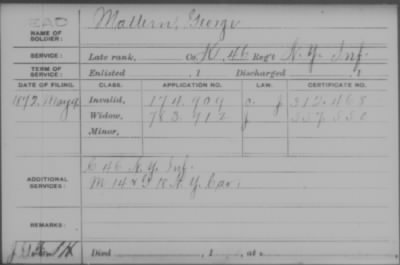 EAD
NAME OF SOLDIER: Mattern, George
SERVICE: Late rank, Co. K, 46 Reg't N.Y. Inf.
TERM OF SERVICE: Enlisted , 1 Discharged , 1
DATE OF FILING. CLASS. APPLICATION NO. LAW. CERTIFICATE NO.
1872, May Invalid, 174.909 312.468
Widow, 783.912 557.550
Minor,
C 46 N.Y. Inf.
ADDITIONAL SERVICES: M 14 & G 18 N.Y. Cav.
REMARKS:
Died , 1 , at